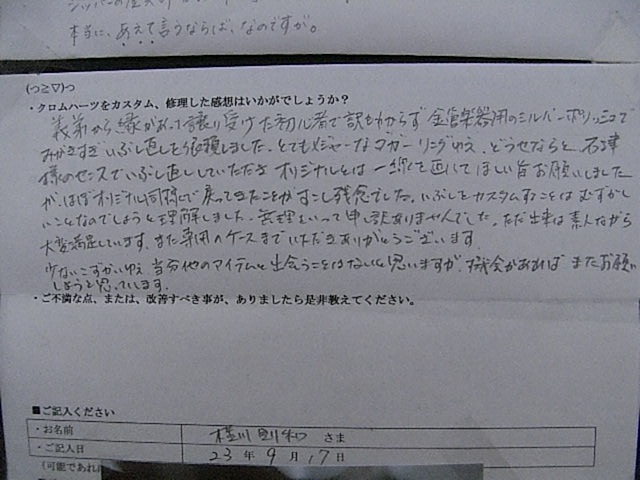 本当に、あえて言うならば、なのですが。
(つ≧▽)つ
・クロムハーツをカスタム、修理した感想はいかがでしょうか？
義弟から縁があって譲り受けた初心者で訳もわからず金管楽器用のシルバーポリッシュで
みがきすぎいぶし直しを依頼しました。とてもメジャーなダガーリングゆえ、どうせならと石津
様のセンスでいぶし直していただきオリジナルとは一線を画してほしい旨お願いしました
が、ほぼオリジナル同様で戻ってきたことがすこし残念でした。いぶしをカスタムすることはむずかし
いことなのでしょうと理解しました。無理をいって申し訳ありませんでした。ただ出来は素人ながら
大変満足しています。また専用のケースまでいただきありがとうございます。
少ないこずかいゆえ当分他のアイテムと出会うことはないと思いますが、機会があればまたお願い
しようと思っています。
・ご不満な点、または、改善すべき事が、ありましたら是非教えてください。
■ご記入ください
・お名前 さま
・ご記入日 23 年 9 月 17 日
(可能であれば